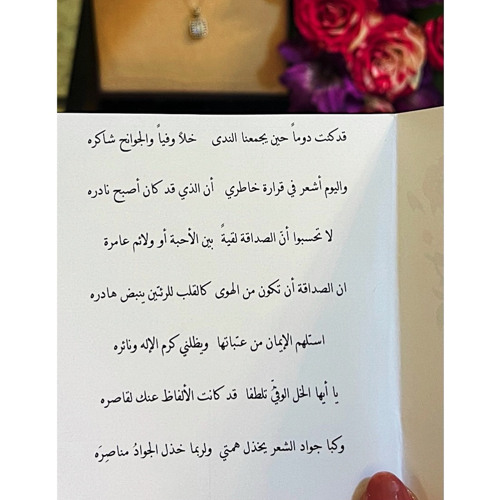 قدكنت دوماً حين يجمعنا الندى خلاً وفياً والجوانح شاكره
واليوم أشعر في قرارة خاطري أن الذي قد كان أصبح نادره
لا تحسبوا أنّ الصداقة لقيةً بين الأحبة أو ولائم عامرة
ان الصداقة أن تكون من الهوى كالقلب للرئتين ينبض هادره
استلهم الإيمان من عتباتها ويظلني كرم الإله ونائره
يا أيها الخل الوفيّ تلطفا قد كانت الألفاظ عنك لقاصره
وكبا جواد الشعر يخذل همتي ولربما خذل الجوادُ مناصِرَه